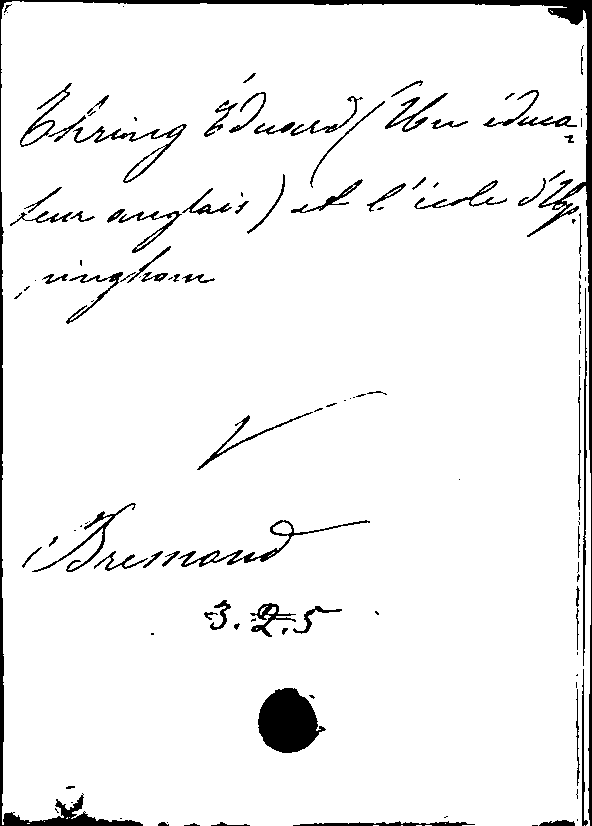 Thring Éduard (Un éduca-
teur anglais) et l'école d'Up-
pingham
V
Bremond
3.2.5